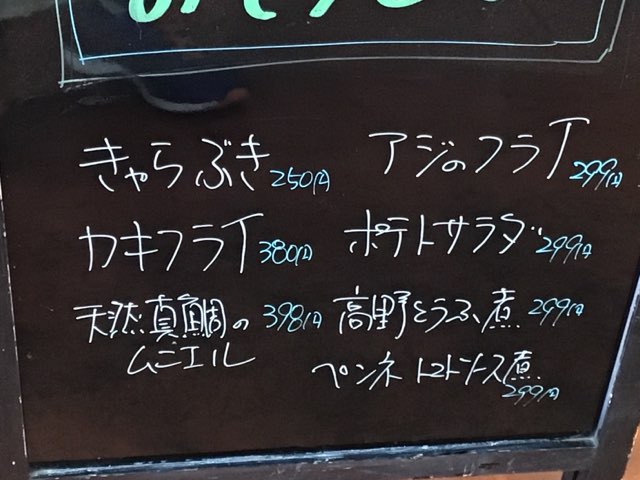 きゃらぶき 250円
アジのフライ 299円
カキフライ 380円
ポテトサラダ 299円
天然真鯛の 398円
ムニエル
高野とうふ煮 299円
ペンネトマトソース煮
299円